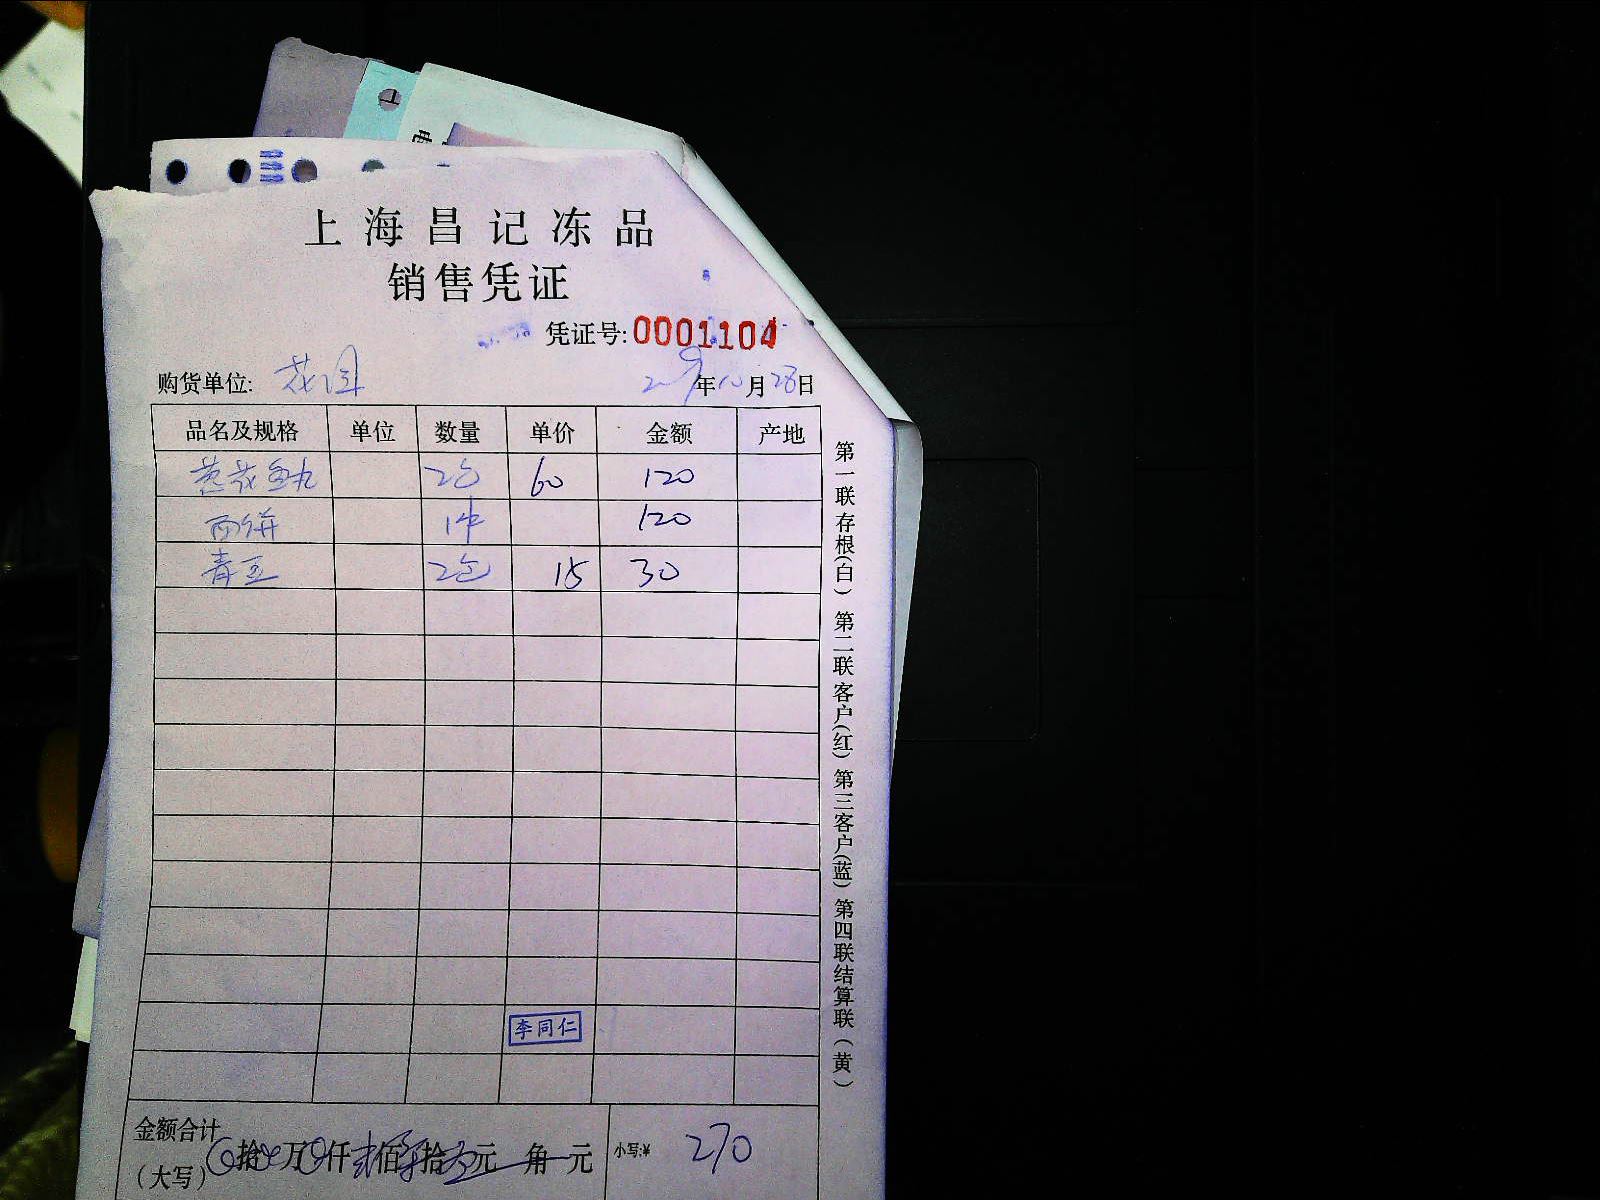 上
电
上海昌记冻品
销售凭证
凭证号:0001104
购货单位: 花园 2009年10月28日
品名及规格 单位 数量 单价 金额 产地
花鱼丸 2包 60 120
饼 1件 120
青豆 2包 15 30
李同仁
金额合计
(大写) 拾 万 仟 贰佰 拾 元 角 元 小写:¥ 270
第一联存根(白) 第二联客户(红) 第三客户(蓝) 第四联结算联(黄)